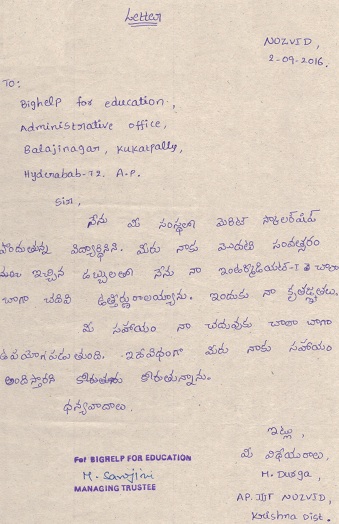 Letter
NOZVID,
2-09-2016.
To:
Bighelp for education,
Administrative office,
Balajinagar, Kukatpally,
Hyderabab-72. A.P.
Sir,
నేను మీ సంస్థలో మెరిట్ స్కాలర్‌షిప్
పొందుతున్న విద్యార్థినిని. మీరు నాకు మొదటి సంవత్సరం
ఇచ్చిన డబ్బులతో నేను నా ఇంటర్మీడియట్-I చాలా
బాగా చదివి ఉత్తీర్ణురాలయ్యాను. ఇందుకు నా కృతజ్ఞతలు.
మీ సహాయం నా చదువుకు చాలా బాగా
ఉపయోగపడుతుంది. ఇదేవిధంగా మీరు నాకు సహాయం
అందిస్తారని కోరుతున్నాను.
ధన్యవాదాలు.
ఇట్లు,
మీ విధేయురాలు,
M. Durga,
A.P. IIIT NUZVID,
Krishna Dist.
For BIGHELP FOR EDUCATION
M. Sarojini
MANAGING TRUSTEE